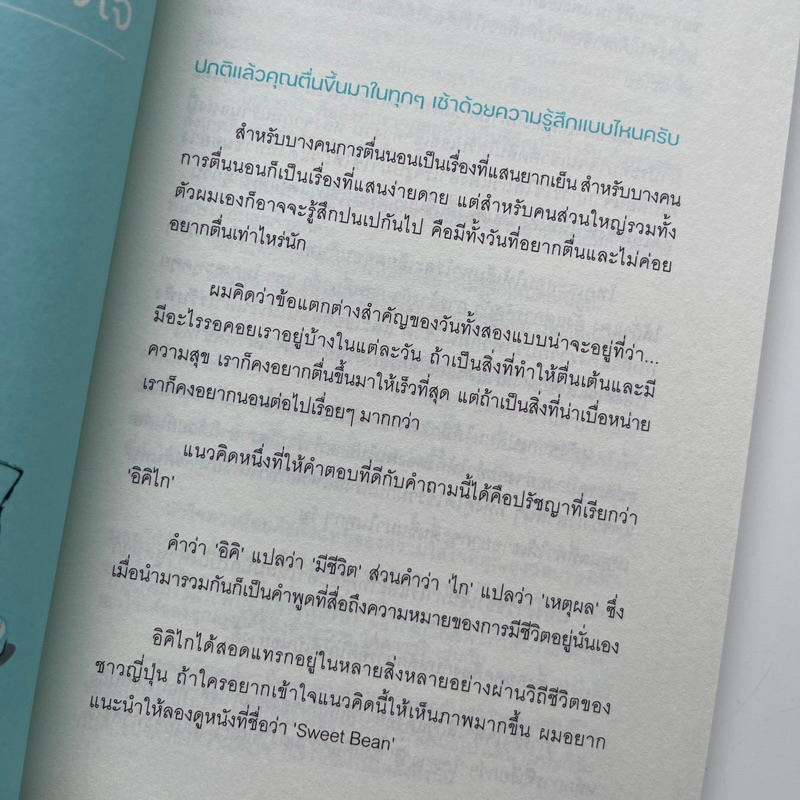 ปกติแล้วคุณตื่นขึ้นมาในทุกๆ เช้าด้วยความรู้สึกแบบไหนครับ
สำหรับบางคนการตื่นนอนเป็นเรื่องที่แสนยากเย็น สำหรับบางคน
การตื่นนอนก็เป็นเรื่องที่แสนง่ายดาย แต่สำหรับคนส่วนใหญ่รวมทั้ง
ตัวผมเองก็อาจจะรู้สึกปนเปกันไป คือมีทั้งวันที่อยากตื่นและไม่ค่อย
อยากตื่นเท่าไหร่นัก
ผมคิดว่าข้อแตกต่างสำคัญของวันทั้งสองแบบน่าจะอยู่ที่ว่า...
มีอะไรรอคอยเราอยู่บ้างในแต่ละวัน ถ้าเป็นสิ่งที่ทำให้ตื่นเต้นและมี
ความสุข เราก็คงอยากตื่นขึ้นมาให้เร็วที่สุด แต่ถ้าเป็นสิ่งที่น่าเบื่อหน่าย
เราก็คงอยากนอนต่อไปเรื่อยๆ มากกว่า
แนวคิดหนึ่งที่ให้คำตอบที่ดีกับคำถามนี้ได้คือปรัชญาที่เรียกว่า
'อิคิไก'
คำว่า 'อิคิ' แปลว่า 'มีชีวิต' ส่วนคำว่า 'ไก' แปลว่า 'เหตุผล' ซึ่ง
เมื่อนำมารวมกันก็เป็นคำพูดที่สื่อถึงความหมายของการมีชีวิตอยู่นั่นเอง
อิคิไกได้สอดแทรกอยู่ในหลายสิ่งหลายอย่างผ่านวิถีชีวิตของ
ชาวญี่ปุ่น ถ้าใครอยากเข้าใจแนวคิดนี้ให้เห็นภาพมากขึ้น ผมอยาก
แนะนำให้ลองดูหนังที่ชื่อว่า 'Sweet Bean'